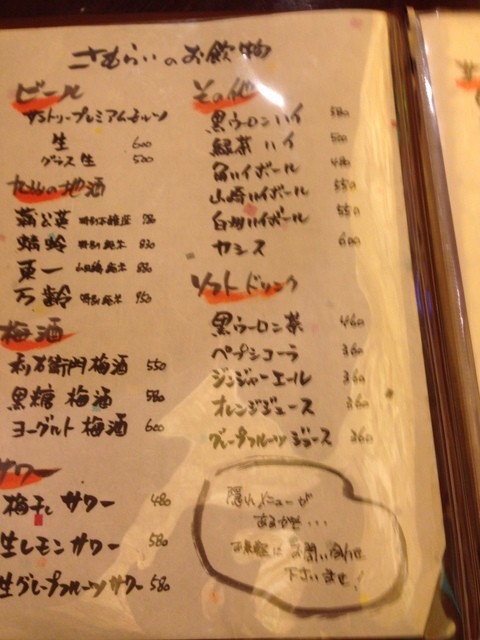 さむらいのお飲物
ビール
サントリープレミアムモルツ
生 600
グラス生 500
九州の地酒
蒲公英 特別本醸造
蜻蛉 特別純米 830
東一 山田錦純米 880
万齢 特別純米 950
梅酒
利右衛門梅酒 550
黒糖梅酒 580
ヨーグルト梅酒 600
サワー
梅干しサワー 480
生レモンサワー 580
生グレープフルーツサワー 580
その他
黒ウーロンハイ 580
緑茶ハイ 500
角ハイボール 480
山崎ハイボール 550
白州ハイボール 550
カシス 600
ソフトドリンク
黒ウーロン茶 460
ペプシコーラ 360
ジンジャーエール 360
オレンジジュース 360
グレープフルーツジュース 360
隠れメニューが
あるかも...
お気軽にお問い合わせ
下さいませ!